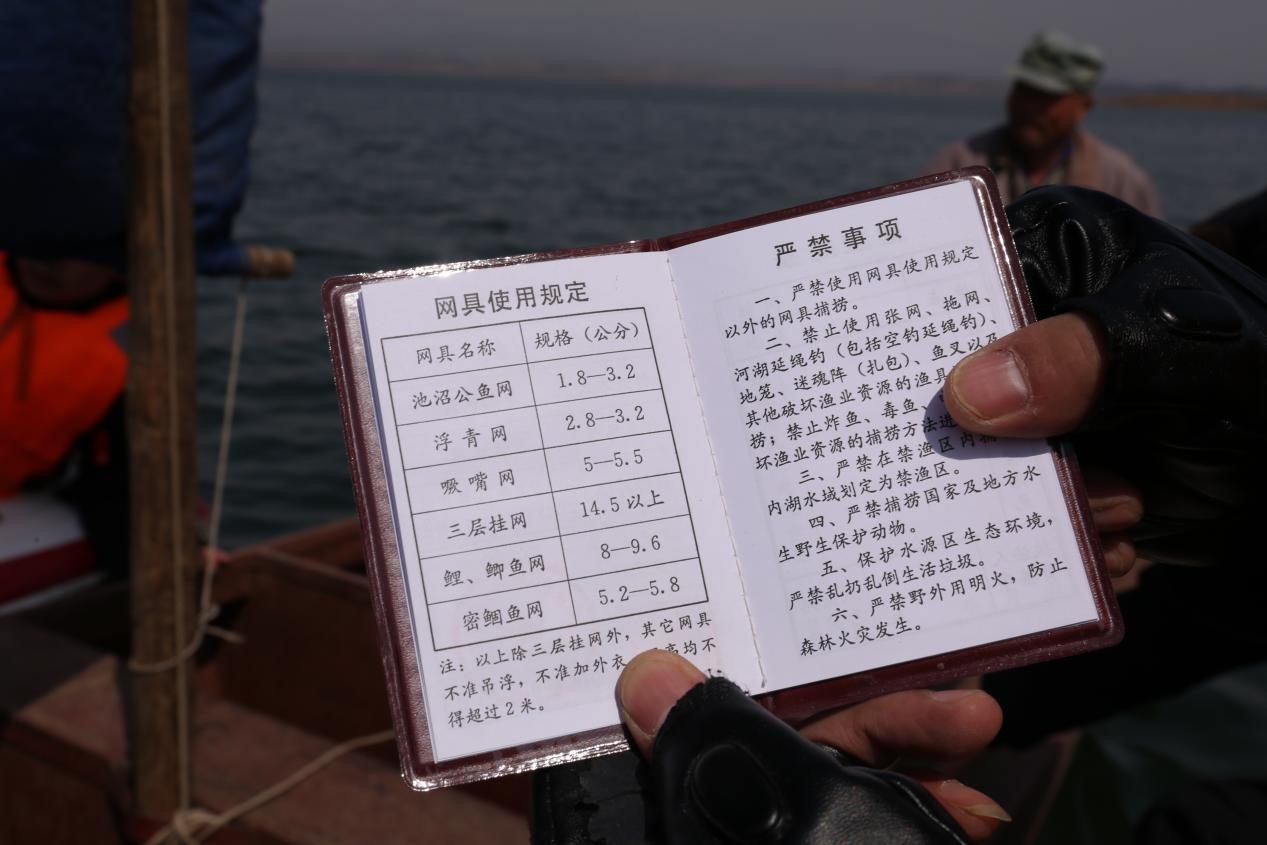 网具使用规定
网具名称 规格（公分）
池沼公鱼网 1.8—3.2
浮青网 2.8—3.2
噘嘴网 5—5.5
三层挂网 14.5以上
鲤、鲫鱼网 8—9.6
密鲴鱼网 5.2—5.8
注：以上除三层挂网外，其它网具
不准吊浮，不准加外衣，高均不
得超过2米。
严禁事项
一、严禁使用网具使用规定
以外的网具捕捞。
二、禁止使用张网、拖网、
河湖延绳钓（包括空钓延绳钓）、
地笼、迷魂阵（扎包）、鱼叉以及
其他破坏渔业资源的渔具
捞；禁止炸鱼、毒鱼、
坏渔业资源的捕捞方法进
三、严禁在禁渔区内捕
内湖水域划定为禁渔区。
四、严禁捕捞国家及地方水
生野生保护动物。
五、保护水源区生态环境，
严禁乱扔乱倒生活垃圾。
六、严禁野外用明火，防止
森林火灾发生。